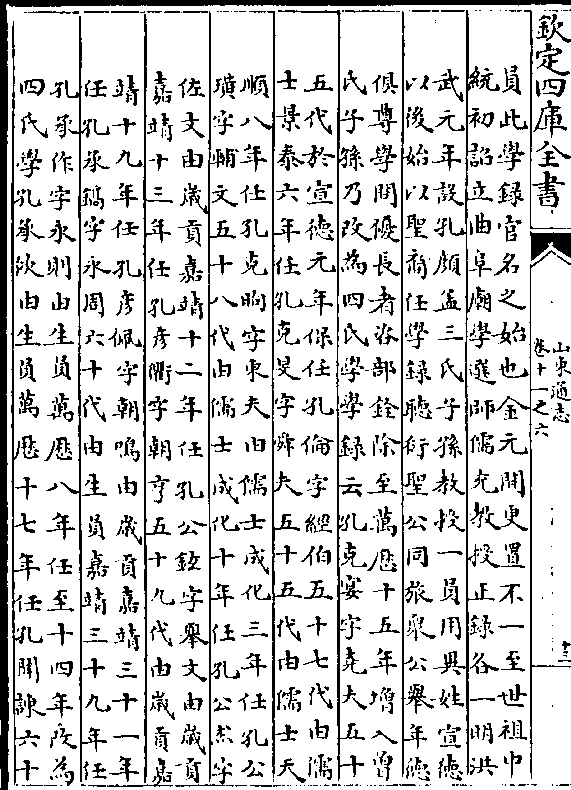 欽定四庫全書
山東通志
卷十一之六
十三
員此學録官名之始也金元間更置不一至世祖中
統初詔立曲阜廟學選師儒充教授正録各一明洪
武元年設孔顔孟三氏子孫教授一員用異姓宣德
以後始以聖裔任學録聽衍聖公同族衆公舉年德
俱尊學問優長者咨部銓除至萬厯十五年增入曾
氏子孫乃改為四氏學學録云孔克宴字堯夫五十
五代於宣德元年保任孔倫字經伯五十七代由儒
士景泰六年任孔克旻字舜夫五十五代由儒士天
順八年任孔克昫字東夫由儒士成化三年任孔公
璜字輔文五十八代由儒士成化十年任孔公杰字
佐文由歲貢嘉靖十二年任孔公字舉文由歲貢
嘉靖十三年任孔彦衢字朝亨五十九代由歲貢嘉
靖十九年任孔彦佩字朝鳴由歲貢嘉靖三十一年
任孔承鎬字永周六十代由生員嘉靖三十九年任
孔承作字永則由生員萬厯八年任至十四年改為
四氏學孔承由生員萬厯十七年任孔聞諫六十